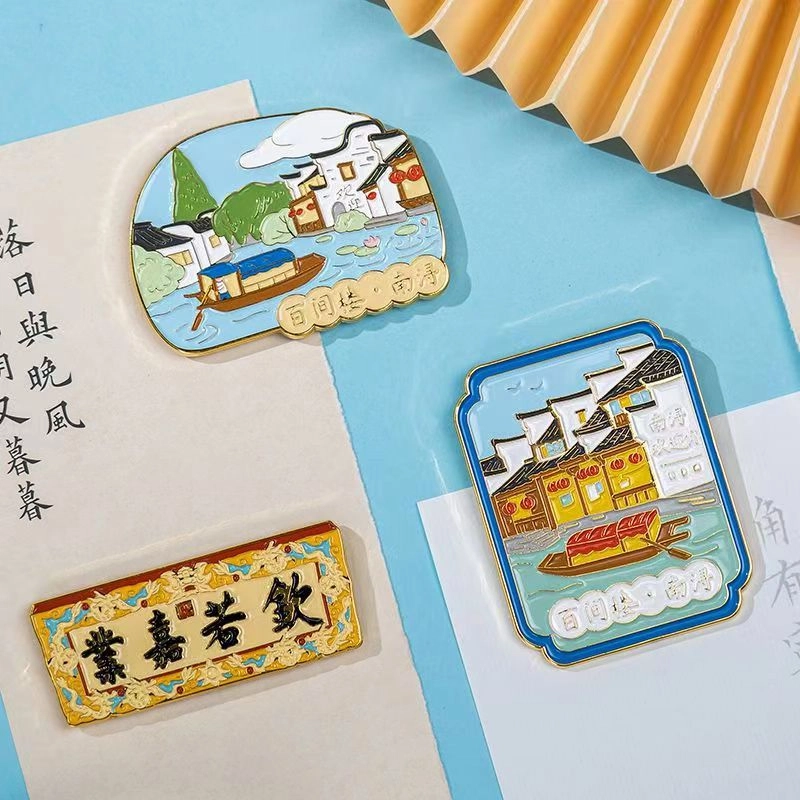 落日與晚風
又暮暮
欢迎
百间楼·南浔
南浔
欢迎你
百间楼·南浔
業嘉若欽
角有